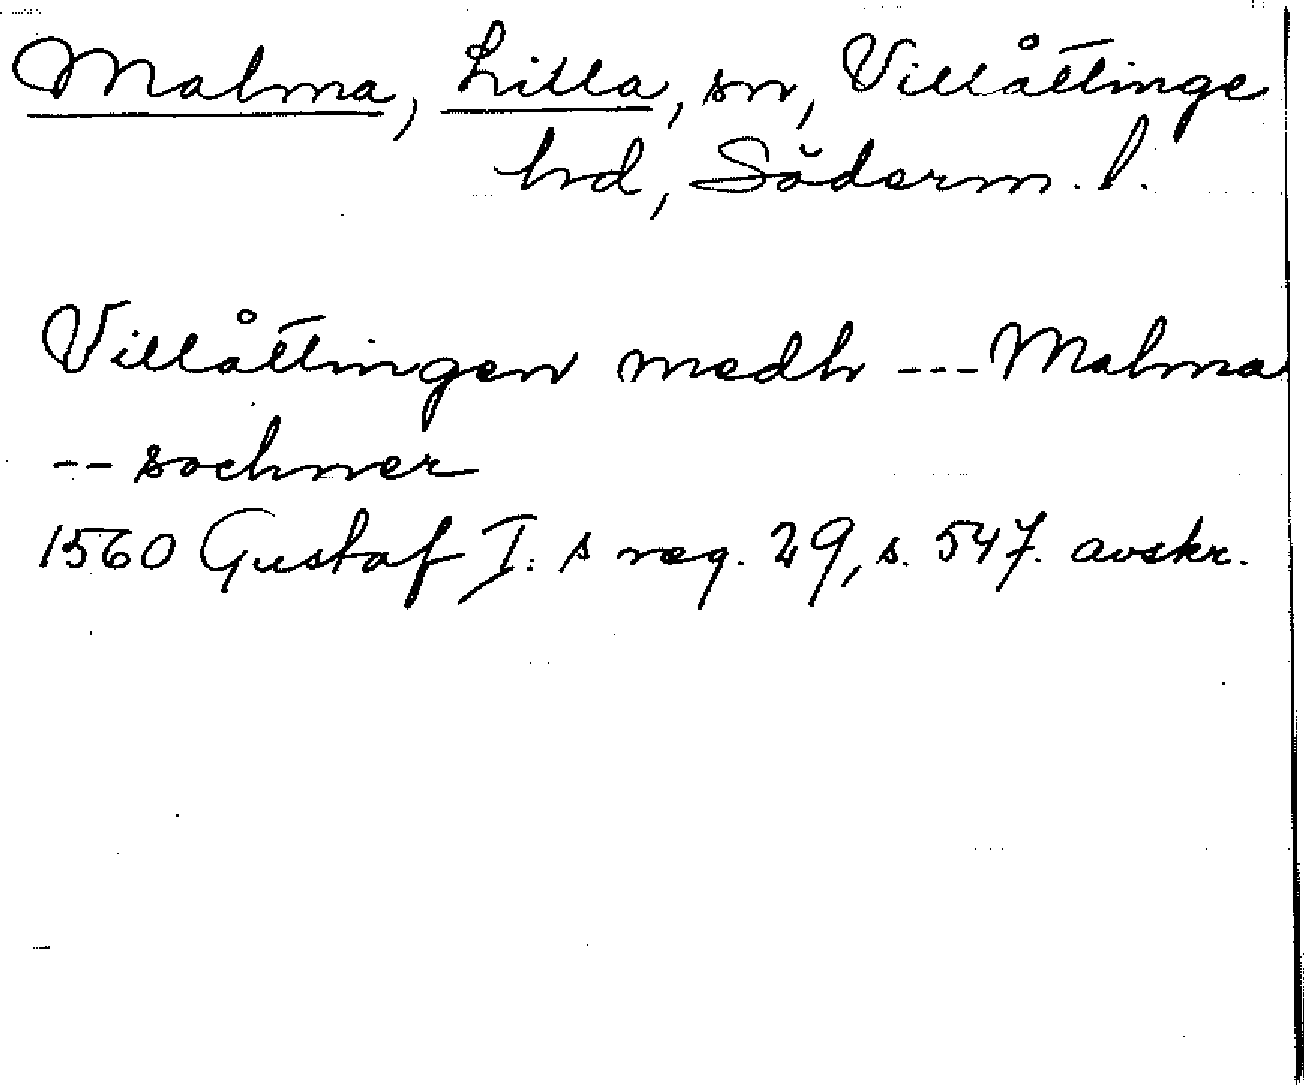 Malma, Lilla, sn, Villåttinge
hd, Söderm. l.
Villåttingen medh --- Malma
-- sochner
1560 Gustaf I: s reg. 29, s. 547. avskr.